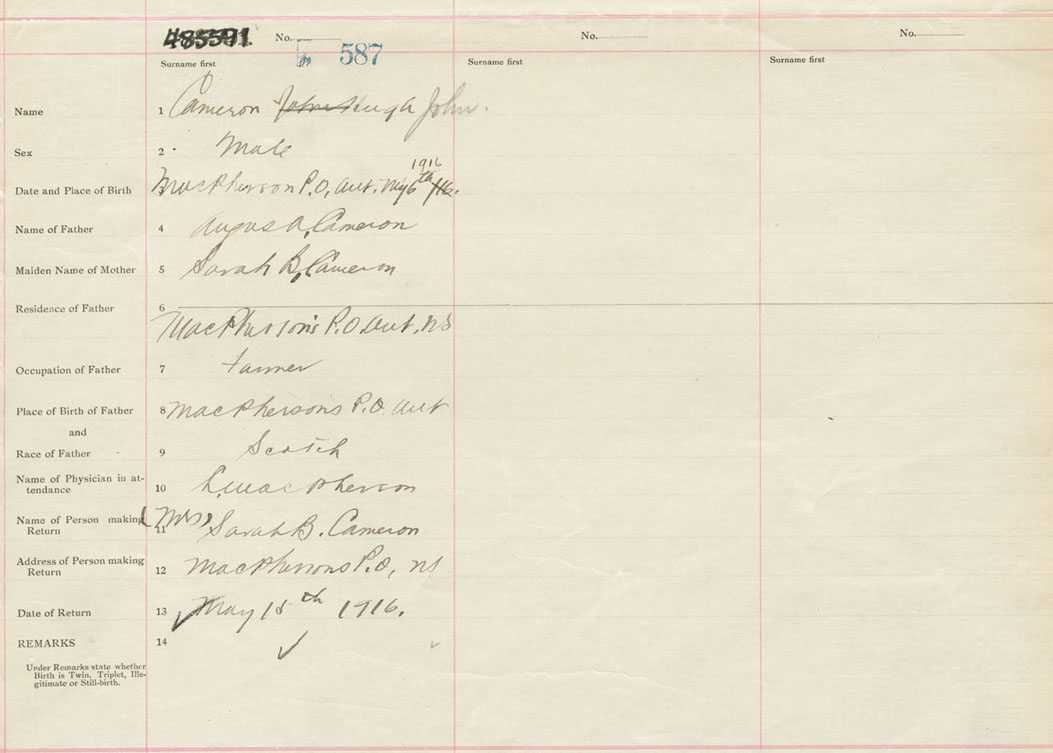 485591 No. 587 No. No.
Surname first Surname first Surname first
Name 1 Cameron John Hugh John.
Sex 2 Male
1916
Date and Place of Birth 3 MacPherson P.O, Ant. My 6th /16.
Name of Father 4 Angus A, Cameron
Maiden Name of Mother 5 Sarah B, Cameron
Residence of Father 6
MacPherson's P.O Ant, NS
Occupation of Father 7 Farmer
Place of Birth of Father 8 MacPhersons P.O. Ant
and
Race of Father 9 Scotch
Name of Physician in at-
tendance 10 MacPherson
Name of Person making (Mrs)
Return 11 Sarah B. Cameron
Address of Person making
Return 12 MacPhersons P.O, NS
Date of Return 13 May 18th 1916.
REMARKS 14
Under Remarks state whether
Birth is Twin, Triplet, Ille-
gitimate or Still-birth.